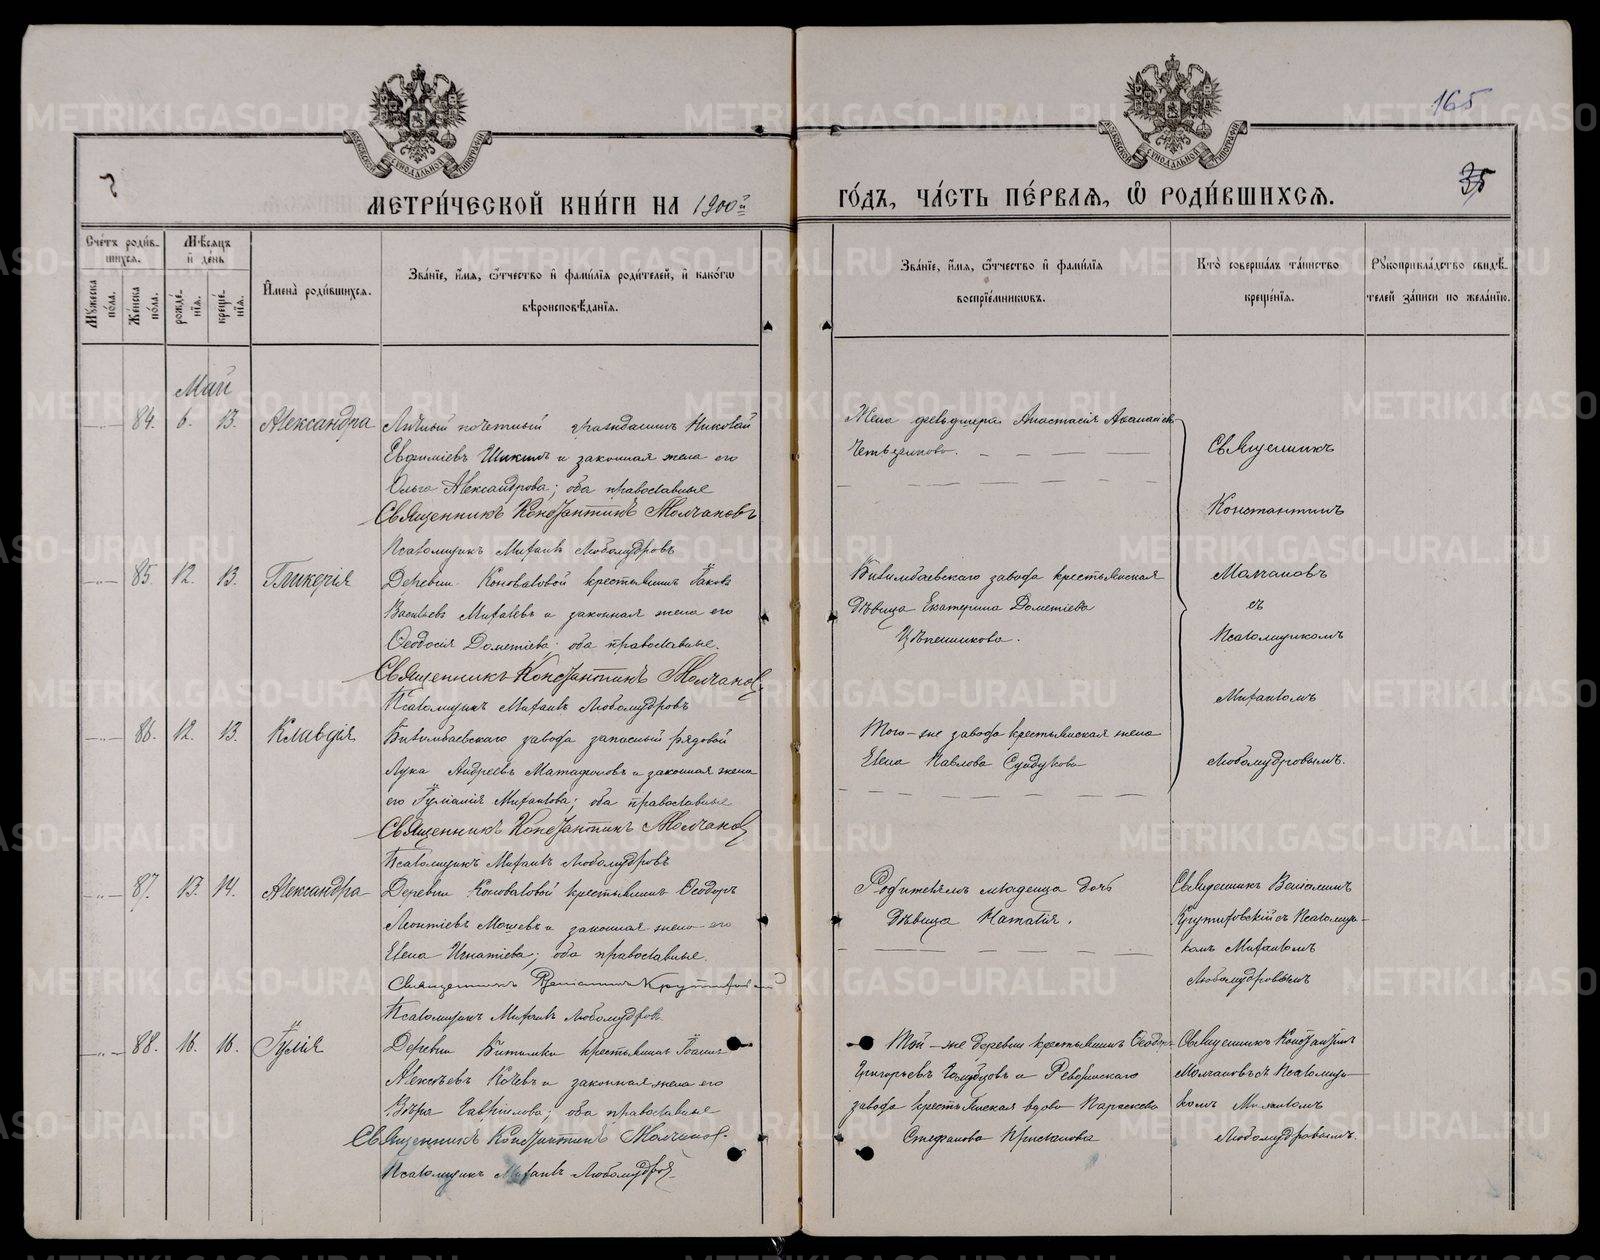 165
35
МЕТРИ́ЧЕСКОЙ КНИ́ГИ НА 1900й
ГО́ДЪ, ЧА́СТЬ ПЕ́РВАЯ, Ѡ РОДИ́ВШИХСЯ.
Сче́тъ роди́в-
шихся.
Мꙋ́жеска по́ла.
Же́нска по́ла.
Мѣ́сяцъ и де́нь
рожде́нїя.
креще́нїя.
И҆мена̀ роди́вшихся.
Зва́нїе, и҆́мя, ѻ҆́тчество и҆ фами́лїя роди́телей, и҆ како́гѡ
вѣроисповѣ́данїя.
Зва́нїе, и҆́мя, ѻ҆́тчество и҆ фами́лїя
воспрїе́мникѡвъ.
Кто̀ соверша́лъ та́инство
креще́нїя.
Рꙋкоприкла́дство свидѣ́-
телей за́писи по жела́нїю.
Май
84. 6. 13. Александра
Личный почетный гражданинъ Николай
Евфиміевъ Шикинъ и законная жена его
Ольга Александрова; оба православные
Священникъ Константинъ Молчановъ
Псаломщикъ Михаилъ Любомудровъ
Жена фельдшера Анастасія
85. 12. 13. Гликерія
Деревни Коноваловой крестьянинъ Іаковъ
Васильевъ Михалевъ и законная жена его
Ѳеодосія Дометіева; оба православные.
Священникъ Константинъ Молчановъ
Псаломщикъ Михаилъ Любомудровъ
Билимбаевскаго завода крестьянская
дѣвица Екатерина Дометіева
Цѣпенникова.
86. 12. 13. Клавдія
Билимбаевскаго завода запасный рядовой
Лука Андреевъ Матафоновъ и законная жена
его Іуліанія Михаилова; оба православные
Священникъ Константинъ Молчановъ
Псаломщикъ Михаилъ Любомудровъ
Того-же завода крестьянская жена
Елена Павлова Сундукова
Священникъ
Константинъ
Молчановъ
съ
Псаломщикомъ
Михаиломъ
Любомудровымъ.
87. 13. 14. Александра
Деревни Коноваловой крестьянинъ Ѳеодоръ
Леонтіевъ Мошевъ и законная жена его
Елена Игнатіева; оба православные.
Священникъ Веніаминъ
Псаломщикъ Михаилъ Любомудровъ
Родителямъ младенца дочь
дѣвица Наталія.
Священникъ Веніаминъ
съ Псаломщи-
комъ Михаиломъ
Любомудровымъ
88. 16. 16. Іулія
Деревни Битимки крестьянинъ Іоаннъ
Алексѣевъ Кочевъ и законная жена его
Вѣра Гавріилова; оба православные
Священникъ Константинъ Молчановъ
Псаломщикъ Михаилъ Любомудровъ
Той-же деревни крестьянинъ Ѳеодоръ
Григорьевъ Голубцовъ и Ревдинскаго
завода крестьянская вдова Параскева
Стефанова
Священникъ Константинъ
Молчановъ съ Псаломщи-
комъ Михаиломъ
Любомудровымъ.
METRIKI.GASO-URAL.RU